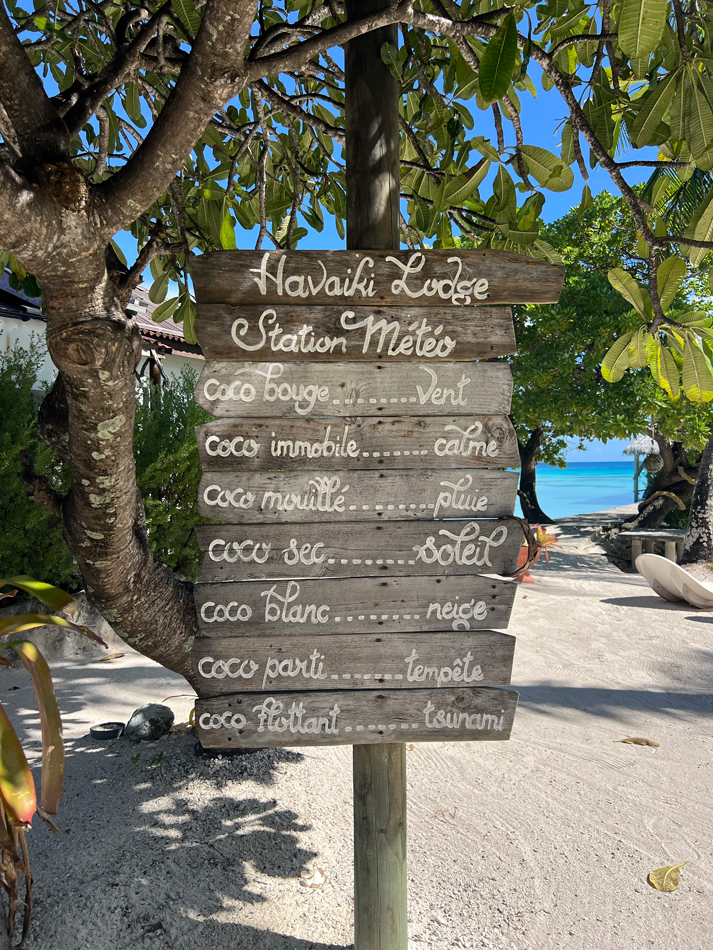 Havaiki Lodge
Station Météo
coco bouge........vent
coco immobile....... calme
coco mouillé.........pluie
coco sec.........soleil
coco blanc......... neige
coco parti.......tempête
coco flottant........ tsunami